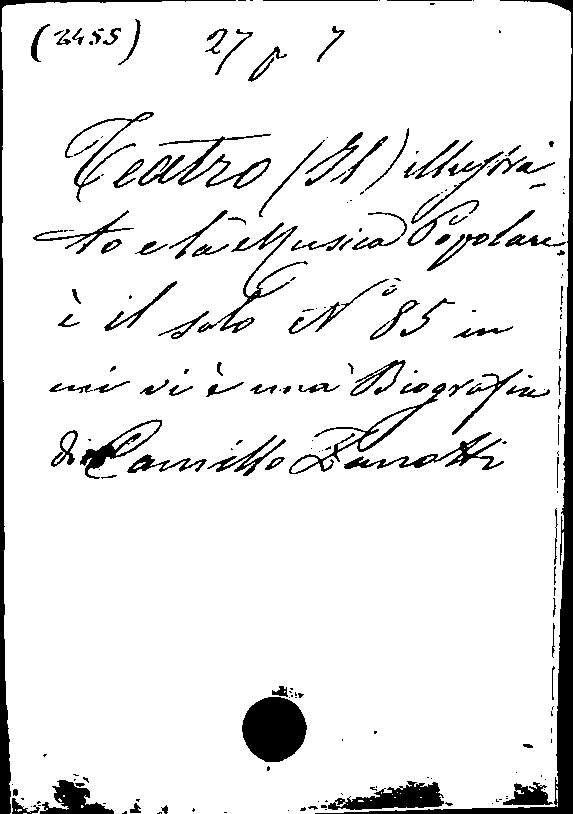 (2455) 27 p 7
Teatro (Il) illustra-
to e la Musica Popolare.
è il solo N° 85 in
cui vi è una Biografia
di Camillo Zanotti